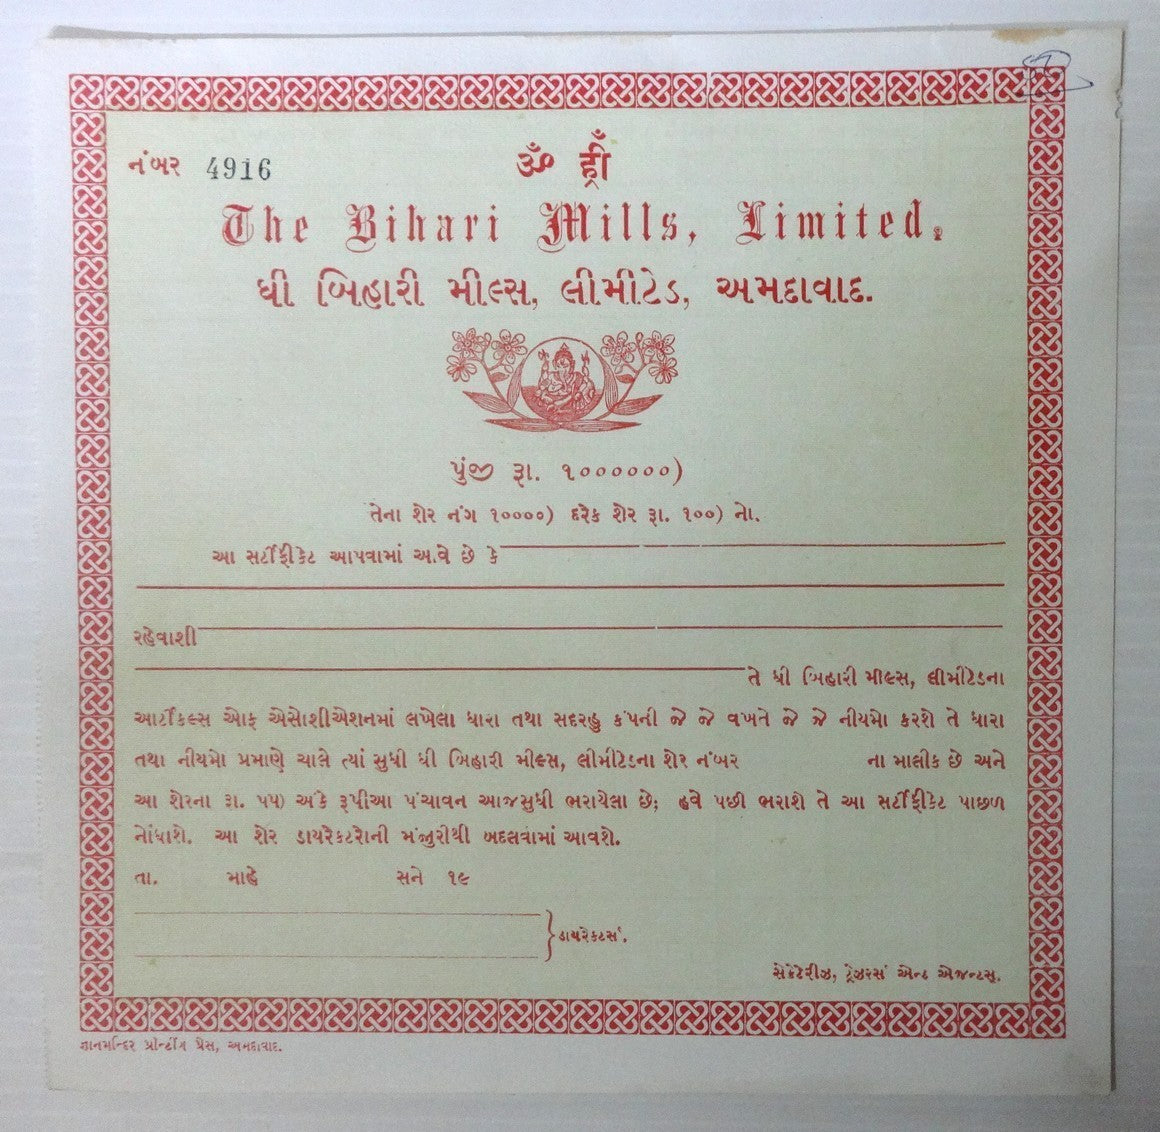 નંબર 4916
ॐ ह्रीँ
The Bihari Mills, Limited.
ધી બિહારી મીલ્સ, લીમીટેડ, અમદાવાદ.
પુંજી રૂા. ૧૦૦૦૦૦૦)
તેના શેર નંગ ૧૦૦૦૦) દરેક શેર રૂા. ૧૦૦) નો.
આ સર્ટીફીકેટ આપવામાં આવે છે કે
રહેવાશી
તે ધી બિહારી મીલ્સ, લીમીટેડના
આર્ટીકલ્સ ઓફ એસોશીએશનમાં લખેલા ધારા તથા સદરહુ કંપની જે જે વખતે જે જે નીયમો કરશે તે ધારા
તથા નીયમો પ્રમાણે ચાલે ત્યાં સુધી ધી બિહારી મીલ્સ, લીમીટેડના શેર નંબર ના માલીક છે અને
આ શેરના રૂા. ૫૫) અંકે રૂપીઆ પંચાવન આજસુધી ભરાયેલા છે; હવે પછી ભરાશે તે આ સર્ટીફીકેટ પાછળ
નોંધાશે. આ શેર ડાયરેક્ટરોની મંજુરીથી બદલવામાં આવશે.
તા. માહે સને ૧૯
ડાયરેક્ટર્સ.
સેક્રેટેરીઝ, ટ્રેઝરર્સ એન્ડ એજન્ટસ્.
જ્ઞાનમન્દિર પ્રીન્ટીંગ પ્રેસ, અમદાવાદ.